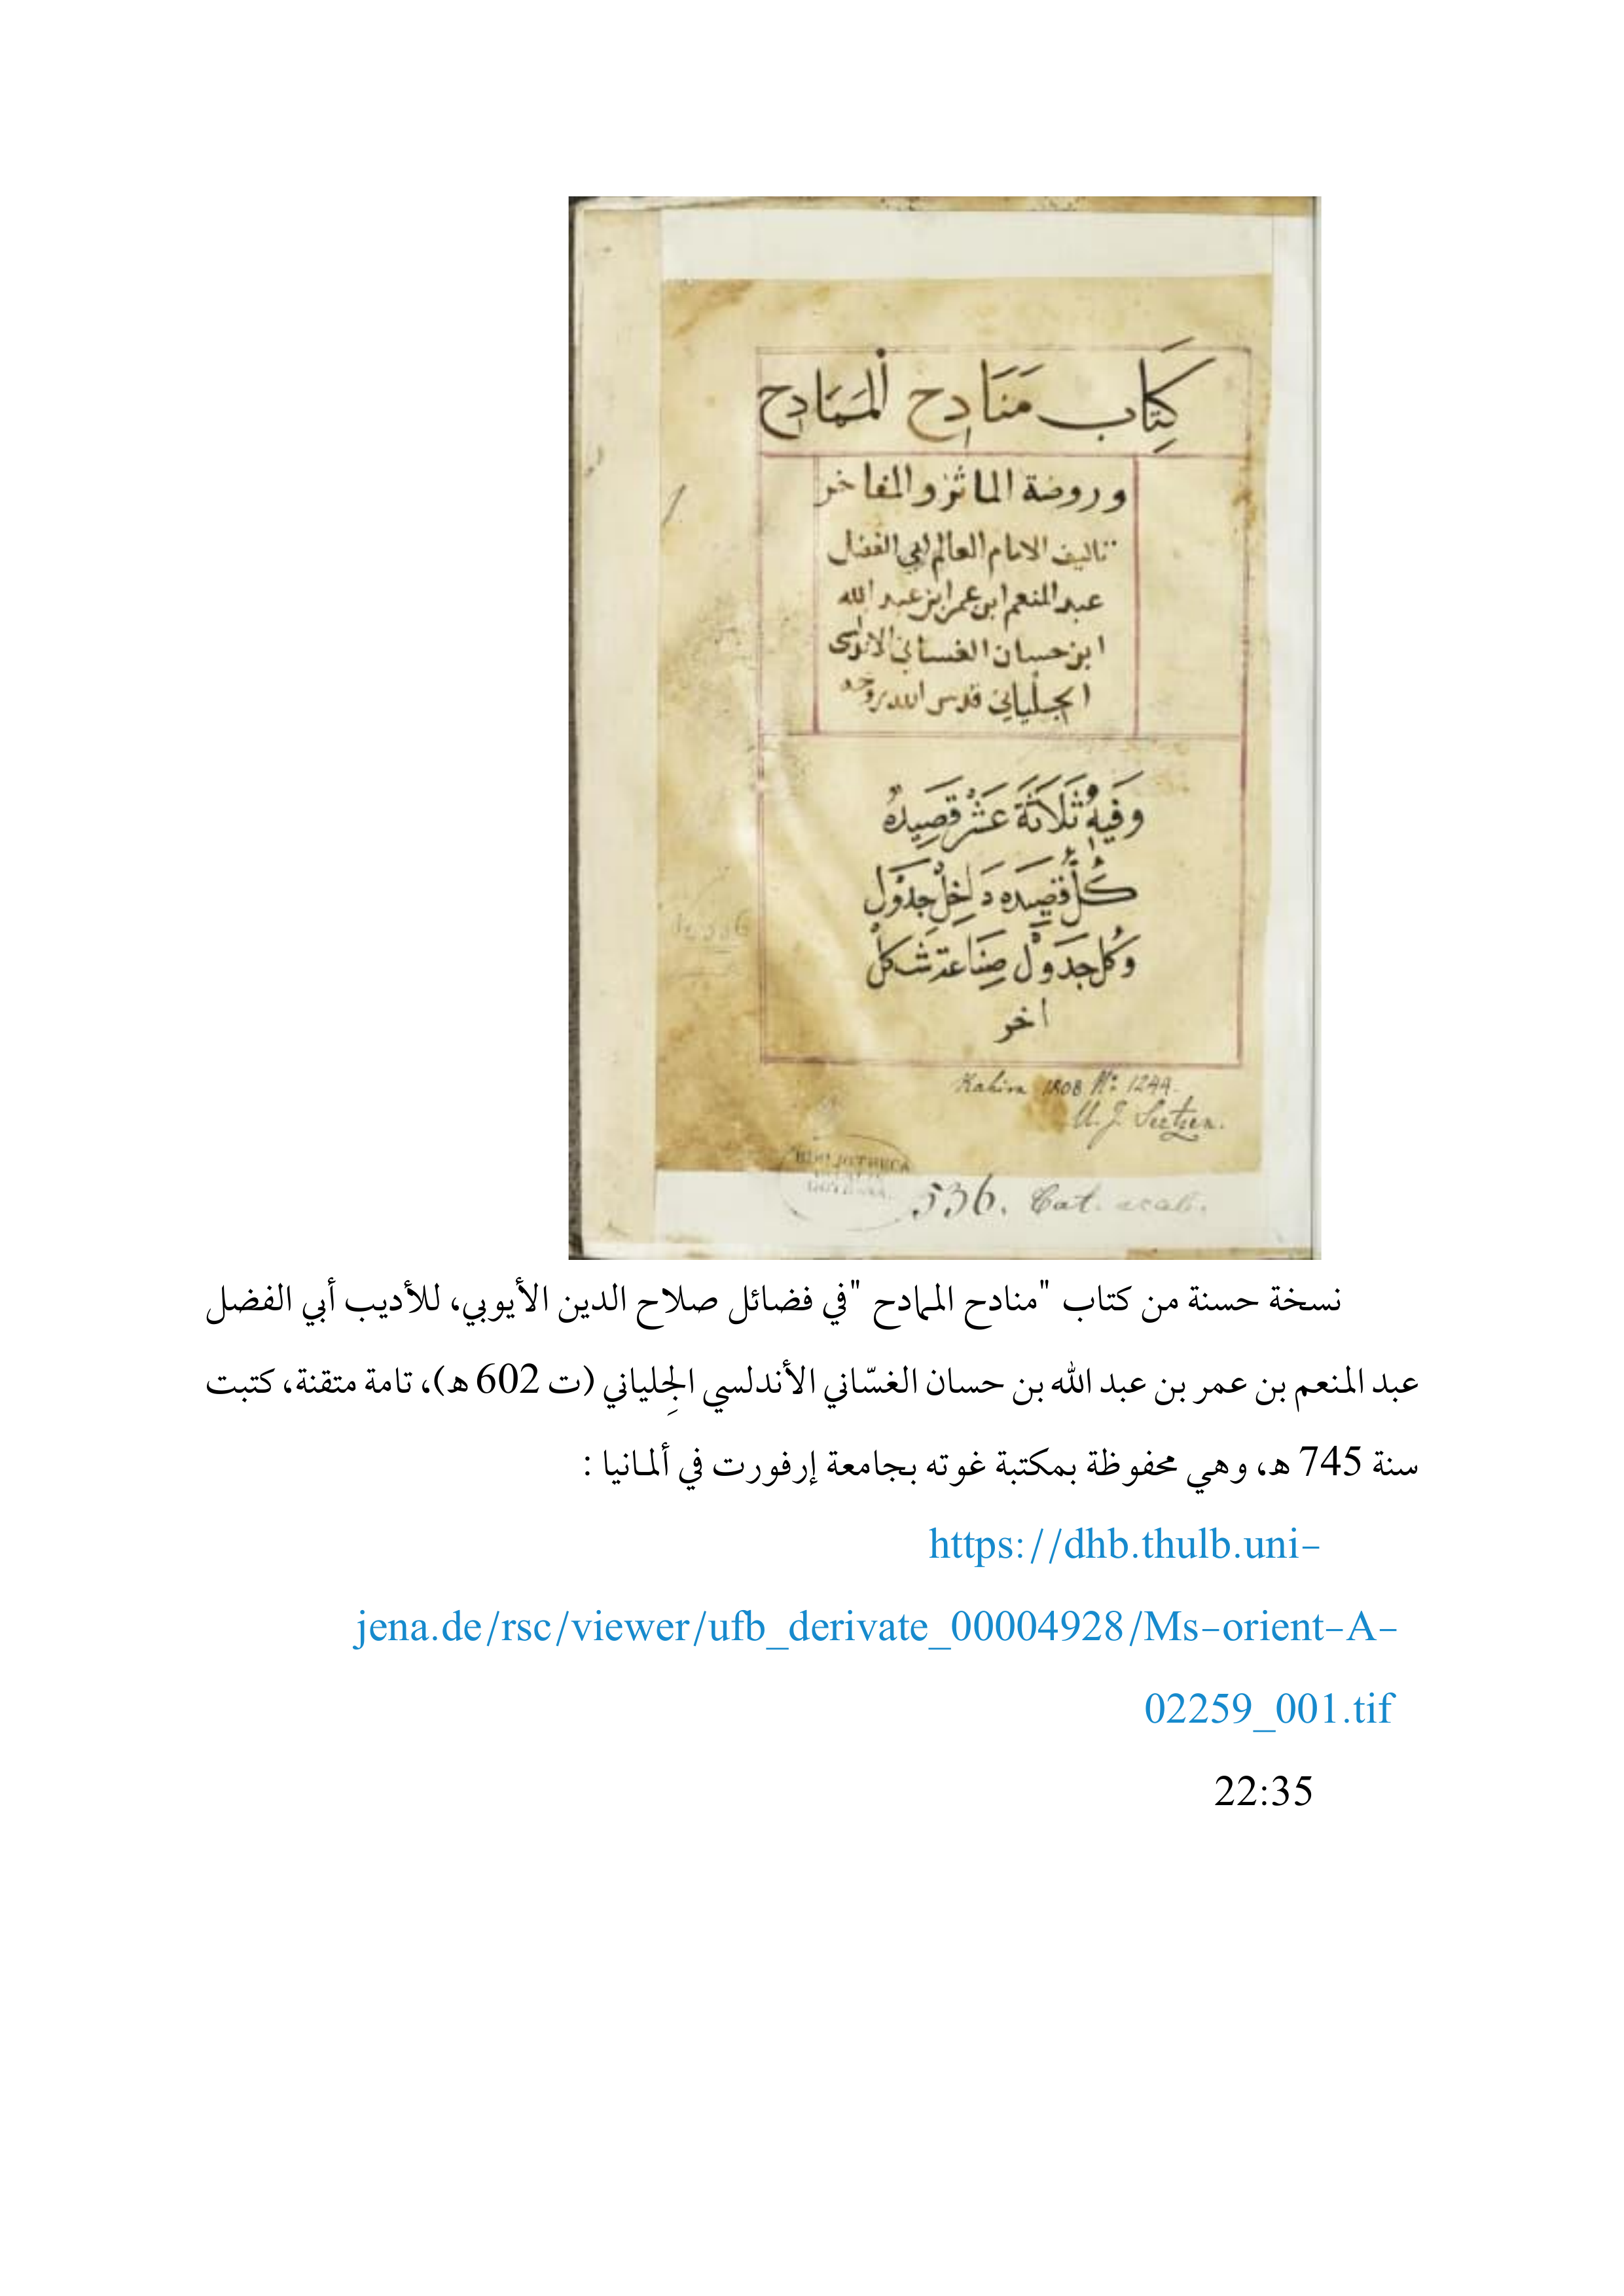 كِتَاب مَنَادِح الْمَمَادِح
وروضة الماثر والمفاخر
تاليف الامام العالم ابي الفضل
عبد المنعم ابن عمر ابن عبد الله
ابن حسان الغساني الاندلسي
الجلياني قدس الله روحه
وَفيهِ ثَلَاثَةَ عَشْر قَصِيده
كُلُّ قصِيَده دَاخِلْ جَدْوَل
وَكُل جَدَوَلْ صِنَاعة شَكلْ
اخر
Kahira 1808 N: 1244.
U. J. Seetzen.
BIBLIOTHECA
536. Cat. arab.
نسخة حسنة من كتاب "منادح الممادح "في فضائل صلاح الدين الأيوبي، للأديب أبي الفضل
عبد المنعم بن عمر بن عبد الله بن حسان الغسّاني الأندلسي الجِلياني (ت 602 هـ)، تامة متقنة، كتبت
سنة 745 هـ، وهي محفوظة بمكتبة غوته بجامعة إرفورت في ألمانيا :
https://dhb.thulb.uni-
jena.de/rsc/viewer/ufb_derivate_00004928/Ms-orient-A-
02259_001.tif
22:35